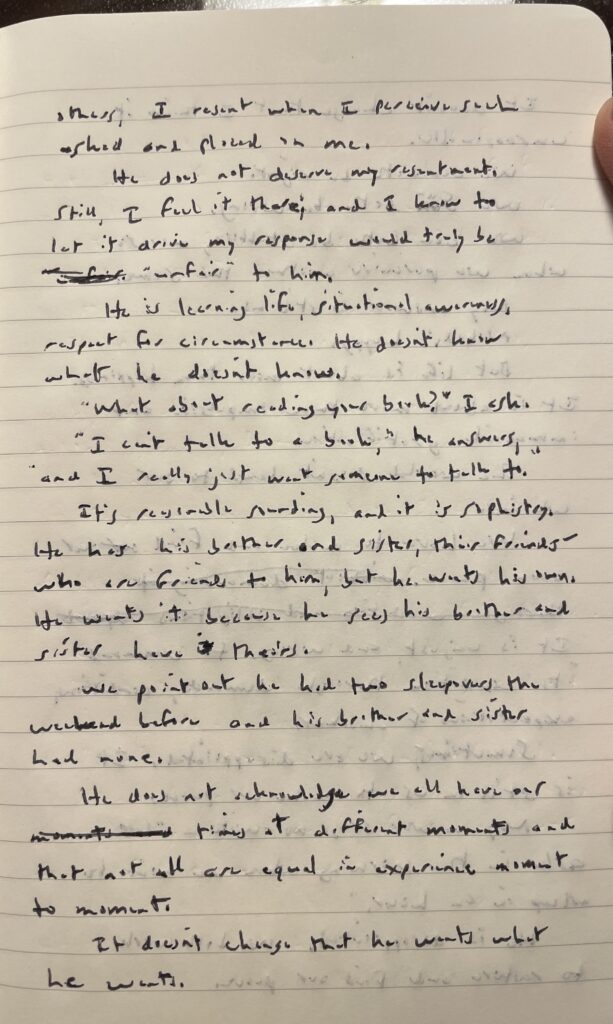 others, I resent when I perceive such
asked and placed on me.
He does not deserve my resentment.
Still, I feel it there; and I know to
let it drive my response would truly be
"unfair" to him.
He is learning life, situational awareness,
respect for circumstance. He doesn't know
what he doesn't know.
"What about reading your book?" I ask.
"I can't talk to a book," he answers,
"and I really just want someone to talk to."
It's reasonable sounding, and it is sophistry.
He has his brother and sister, their friends
who are friends to him, but he wants his own.
He wants it because he sees his brother and
sister have theirs.
We point out he had two sleepovers the
weekend before and his brother and sister
had none.
He does not acknowledge we all have our
times at different moments and
that not all are equal in experience moment
to moment.
It doesn't change that he wants what
he wants.